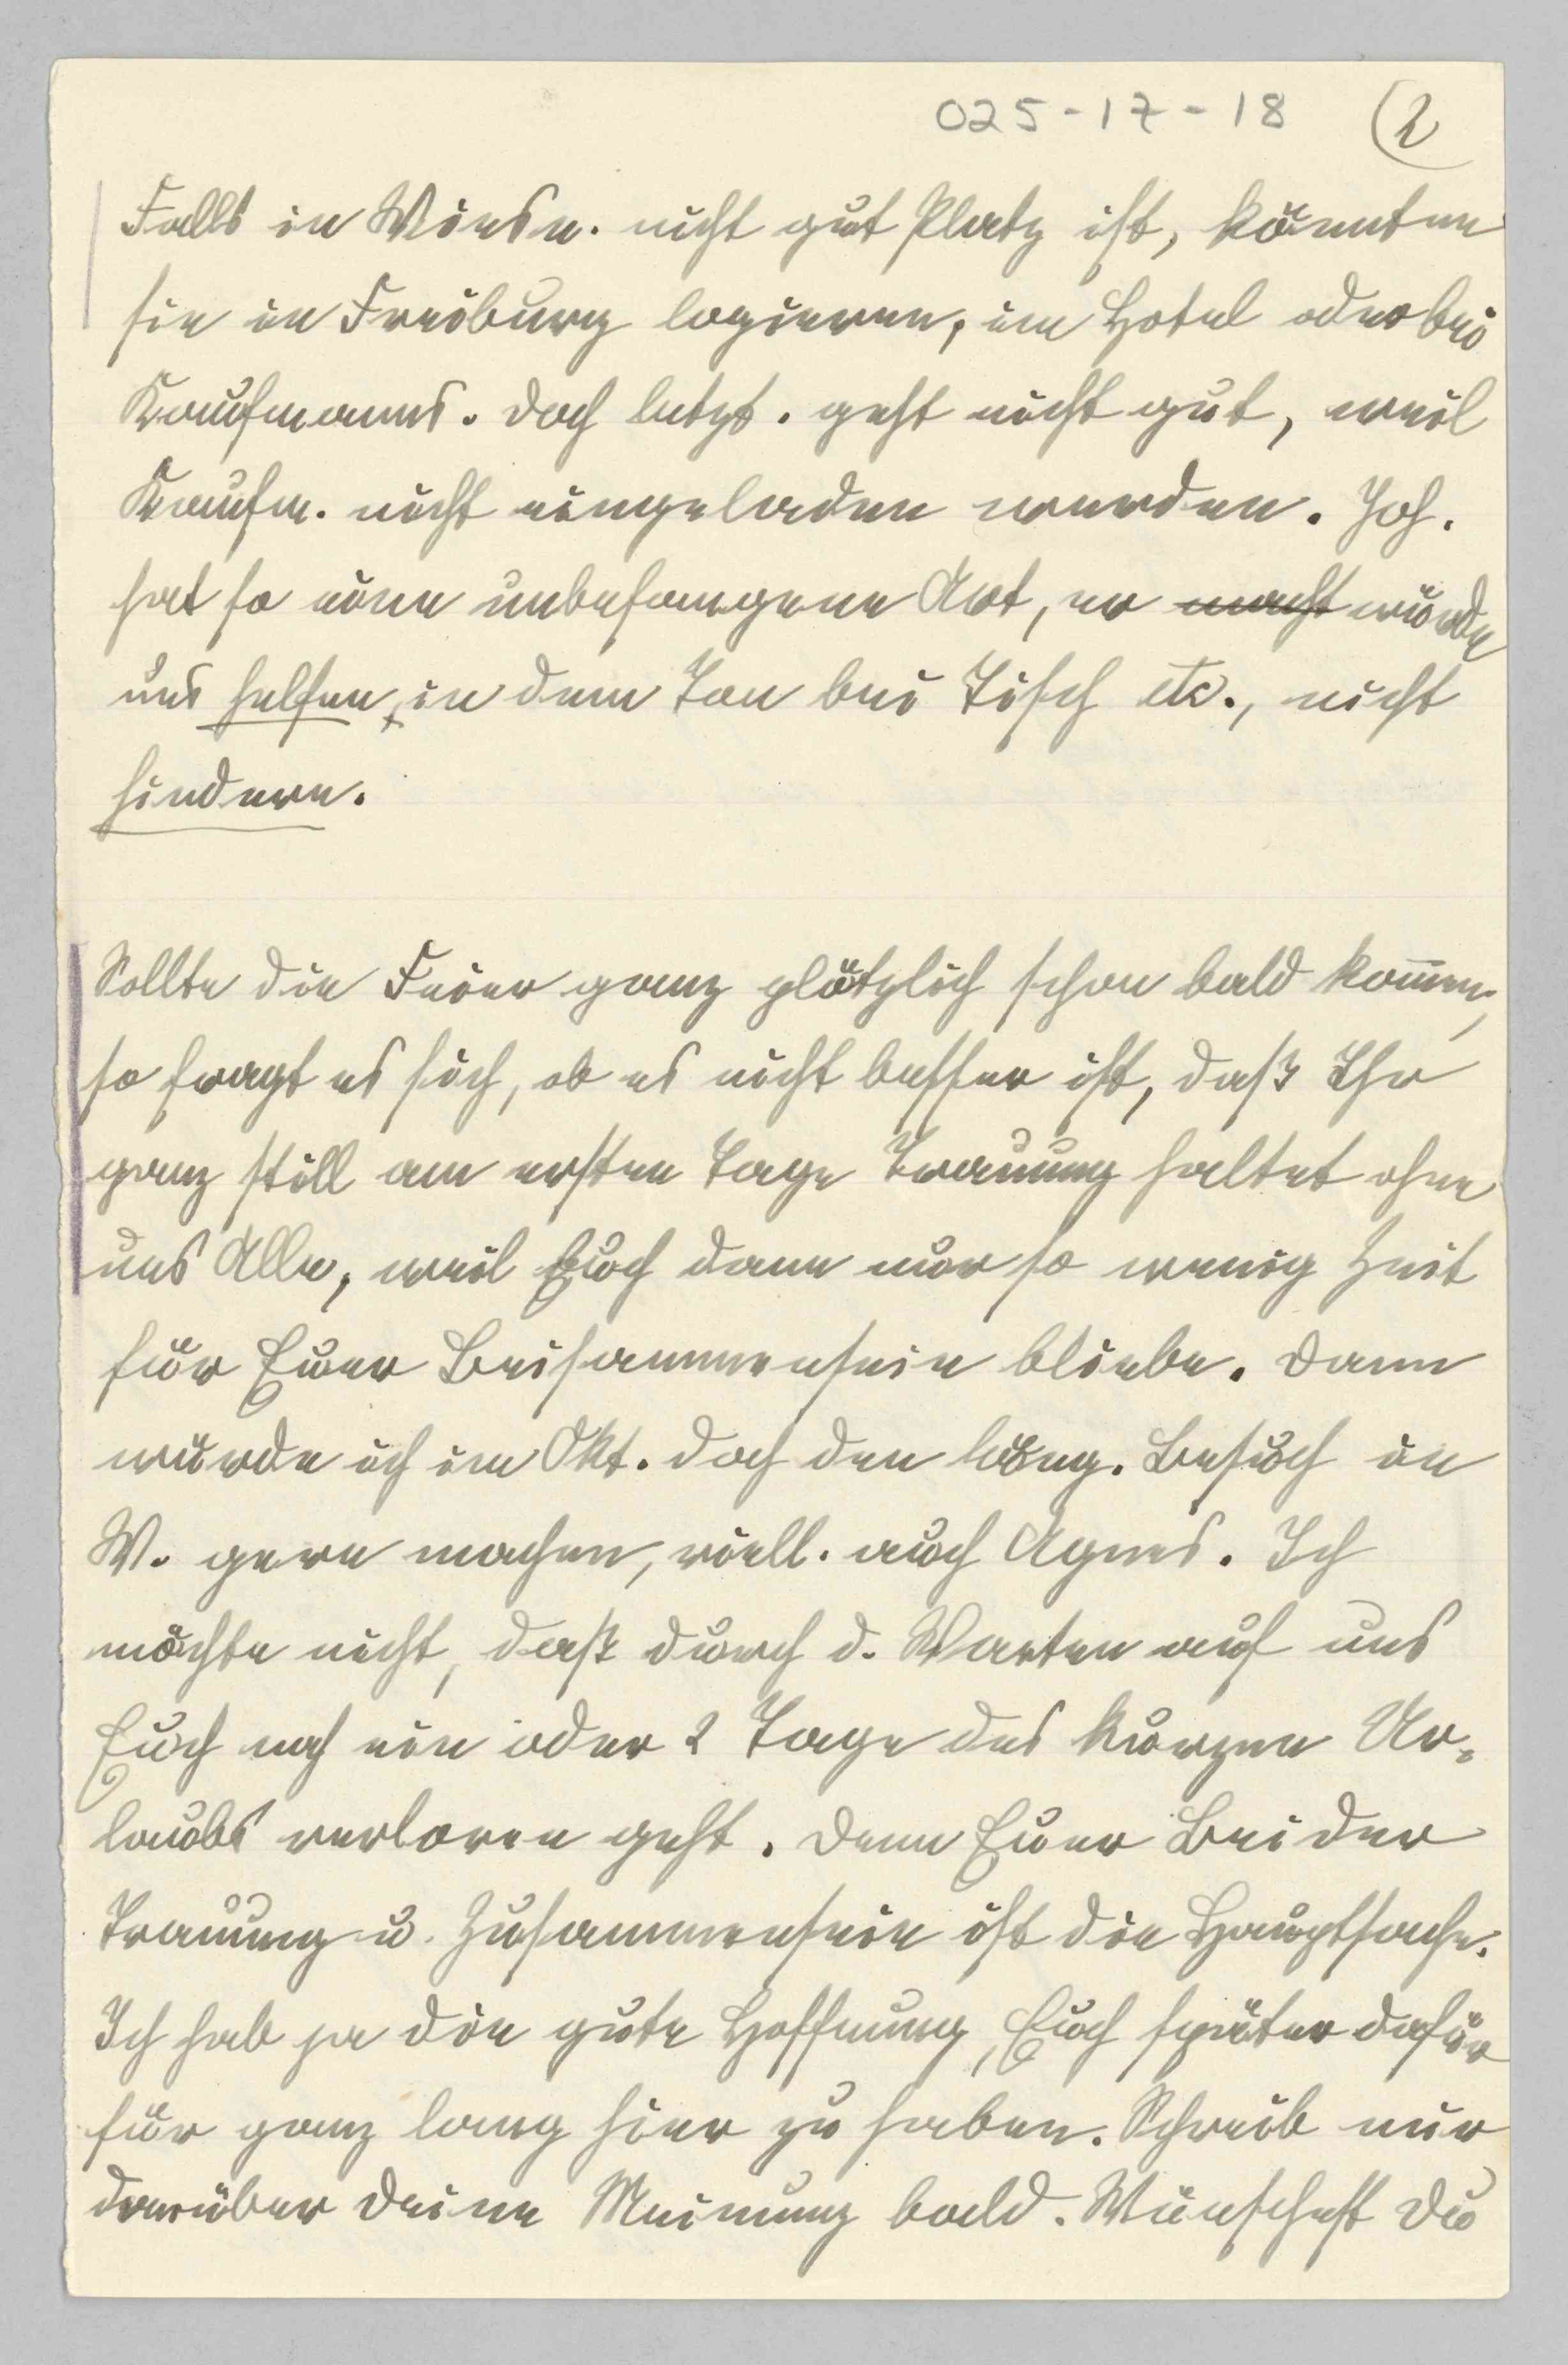 025-17-18 2
Falls in Wiesn. nicht gut Platz ist, könnten
sie in Freiburg logieren, im Hotel oder bei
Kaufmanns. Doch letzt. geht nicht gut, weil
Kaufm. nicht eingeladen werden. Joh.
hat so eine unbefangene Art, er macht würde
uns helfen, in dem Ton bei Tisch etc., nicht
hindern.
Sollte die Feier ganz plötzlich schon bald kom̄en,
so fragt es sich, ob es nicht besser ist, daß Ihr
ganz still am ersten Tage Trauung haltet ohne
uns Alle, weil Euch dann nur so wenig Zeit
für Euer Beisammensein bliebe. Dann
würde ich im Okt. doch den läng. Besuch in
W. gern machen, viell. auch Agnes. Ich
möchte nicht, daß durch d. Warten auf uns
Euch noch ein oder 2 Tage des kurzen Ur-
laubs verloren geht. Denn Euer Beider
Trauung u. Zusammensein ist die Hauptsache.
Ich hab ja die gute Hoffnung, Euch später dafür
für ganz lang hier zu haben. Schreib mir
darüber Deine Meinung bald. Wünschest Du